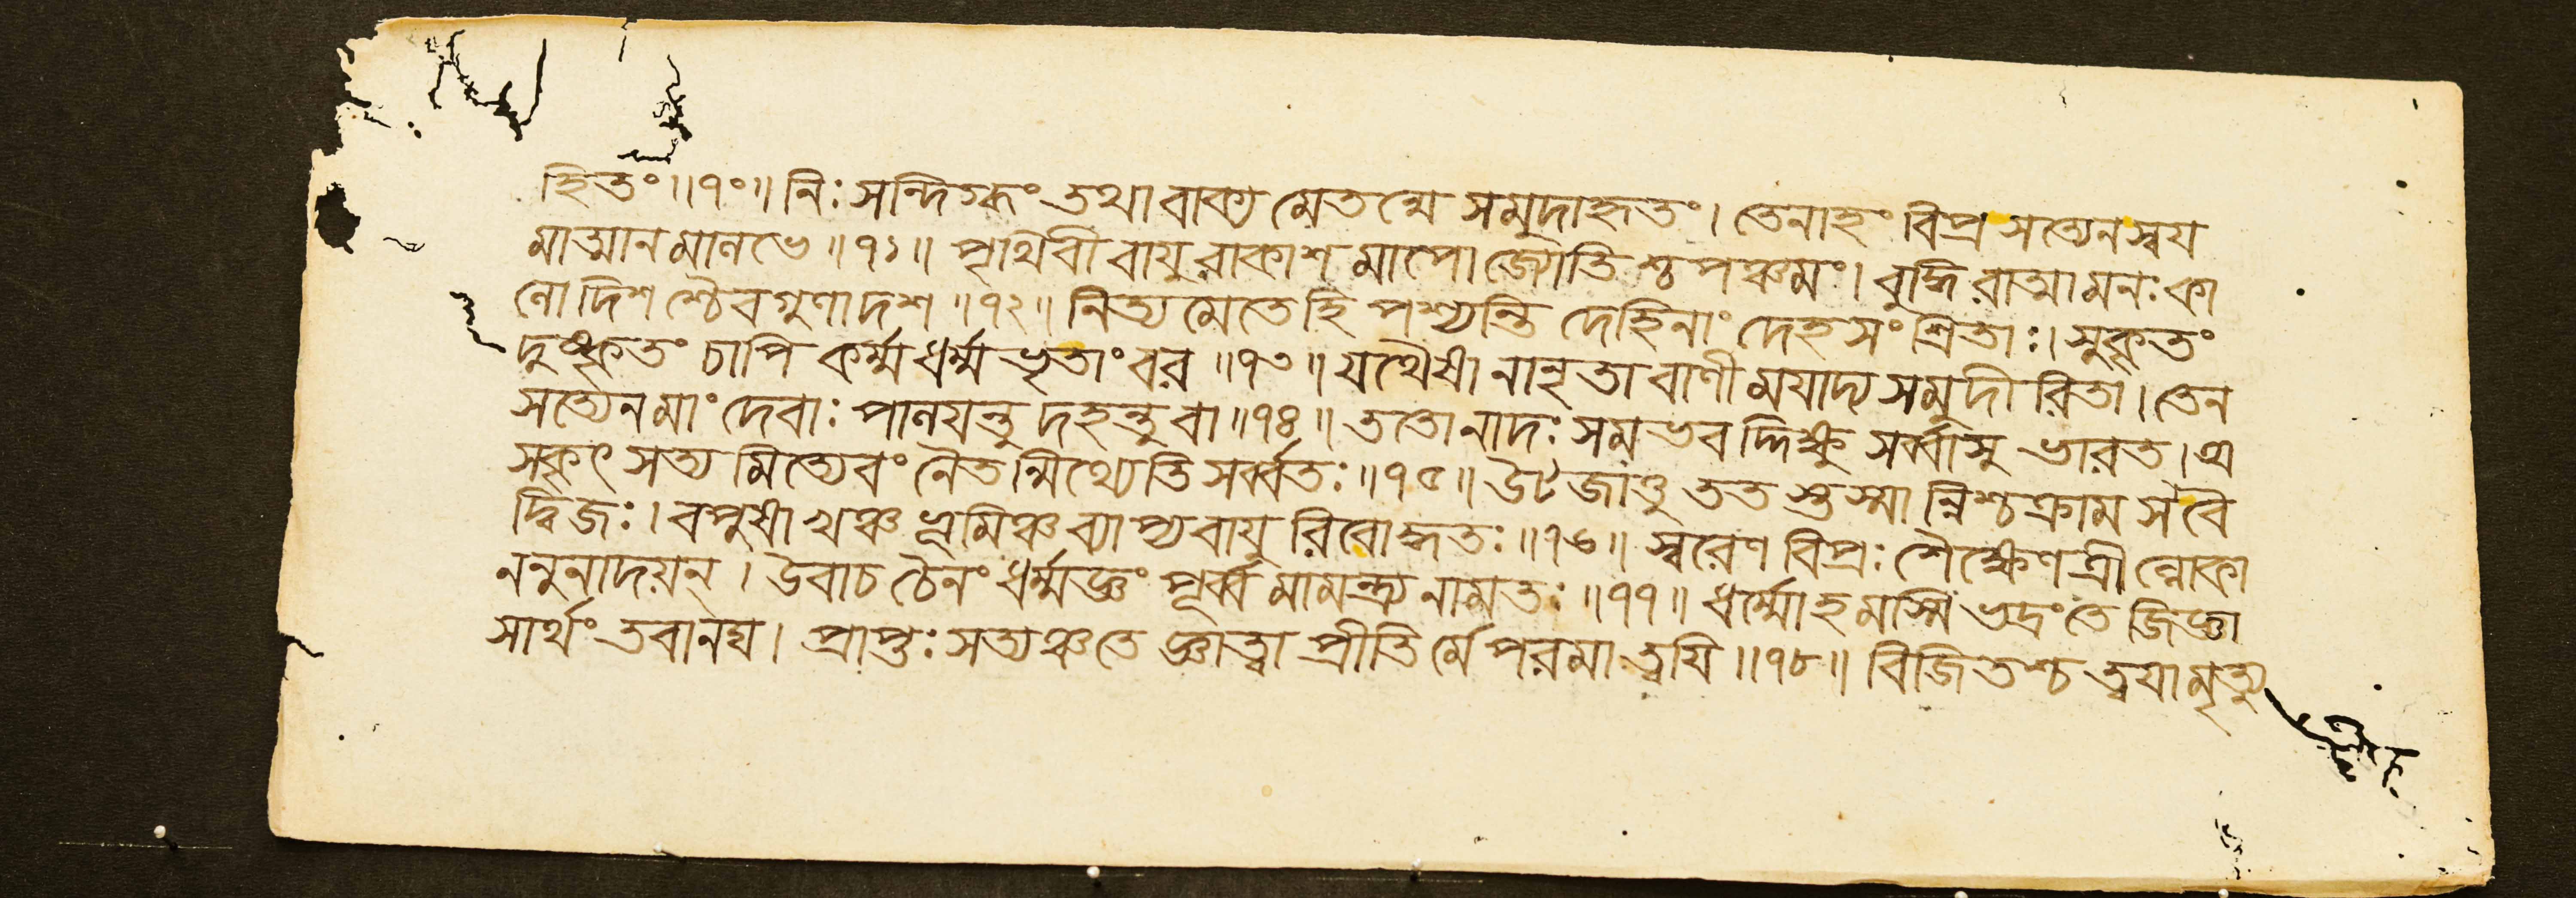 হিতং ॥৭০॥ নিঃসন্দিগ্ধং তথা বাক্য মেতন্মে সমুদাহৃতং । তেনাহং বিপ্র সত্যেন স্বয
মাত্মান মালভে ॥৭১॥ পৃথিবী বায়ু রাকাশ মাপো জ্যোতি শ্চ পঞ্চমং । বুদ্ধি রাত্মা মনঃ কা
লো দিশ শ্চৈব গুণা দশ ॥৭২॥ নিত্য মেতে হি পশ্যন্তি দেহিনাং দেহ সংশ্রিতাঃ । সুকৃতং
দুষ্কৃতং চাপি কর্ম্ম ধর্ম্ম ভৃতাং বর ॥৭৩॥ যথৈষা নানৃতা বাণী ময়াদ্য সমুদীরিতা । তেন
সত্যেন মাং দেবাঃ পালয়ন্তু দহন্তু বা ॥৭৪॥ ততো নাদঃ সমভবদ্দিক্ষু সর্ব্বাসু ভারত । অ
সকৃৎ সত্য মিত্যেবং নৈতন্মিথ্যেতি সর্ব্বতঃ ॥৭৫॥ উটজাত্তু তত স্তস্মা ন্নিশ্চক্রাম স বৈ
দ্বিজঃ । বপুষা খঞ্চ ভূমিঞ্চ ব্যাপ্য বায়ু রিবোদ্ধতঃ ॥৭৬॥ স্বরেণ বিপ্রঃ শৈক্ষেণ ত্রীল্লোকা
ননুনাদয়ন্ । উবাচ চৈনং ধর্ম্মজ্ঞং পূর্ব্ব মামন্ত্র্য নামতঃ ॥৭৭॥ ধর্ম্মোহমস্মি ভদ্রং তে জিজ্ঞা
সার্থং তবানঘ । প্রাপ্তঃ সত্যঞ্চ তে জ্ঞাত্বা প্রীতি র্মে পরমা ত্বয়ি ॥৭৮॥ বিজিতশ্চ ত্বয়া মৃত্যু